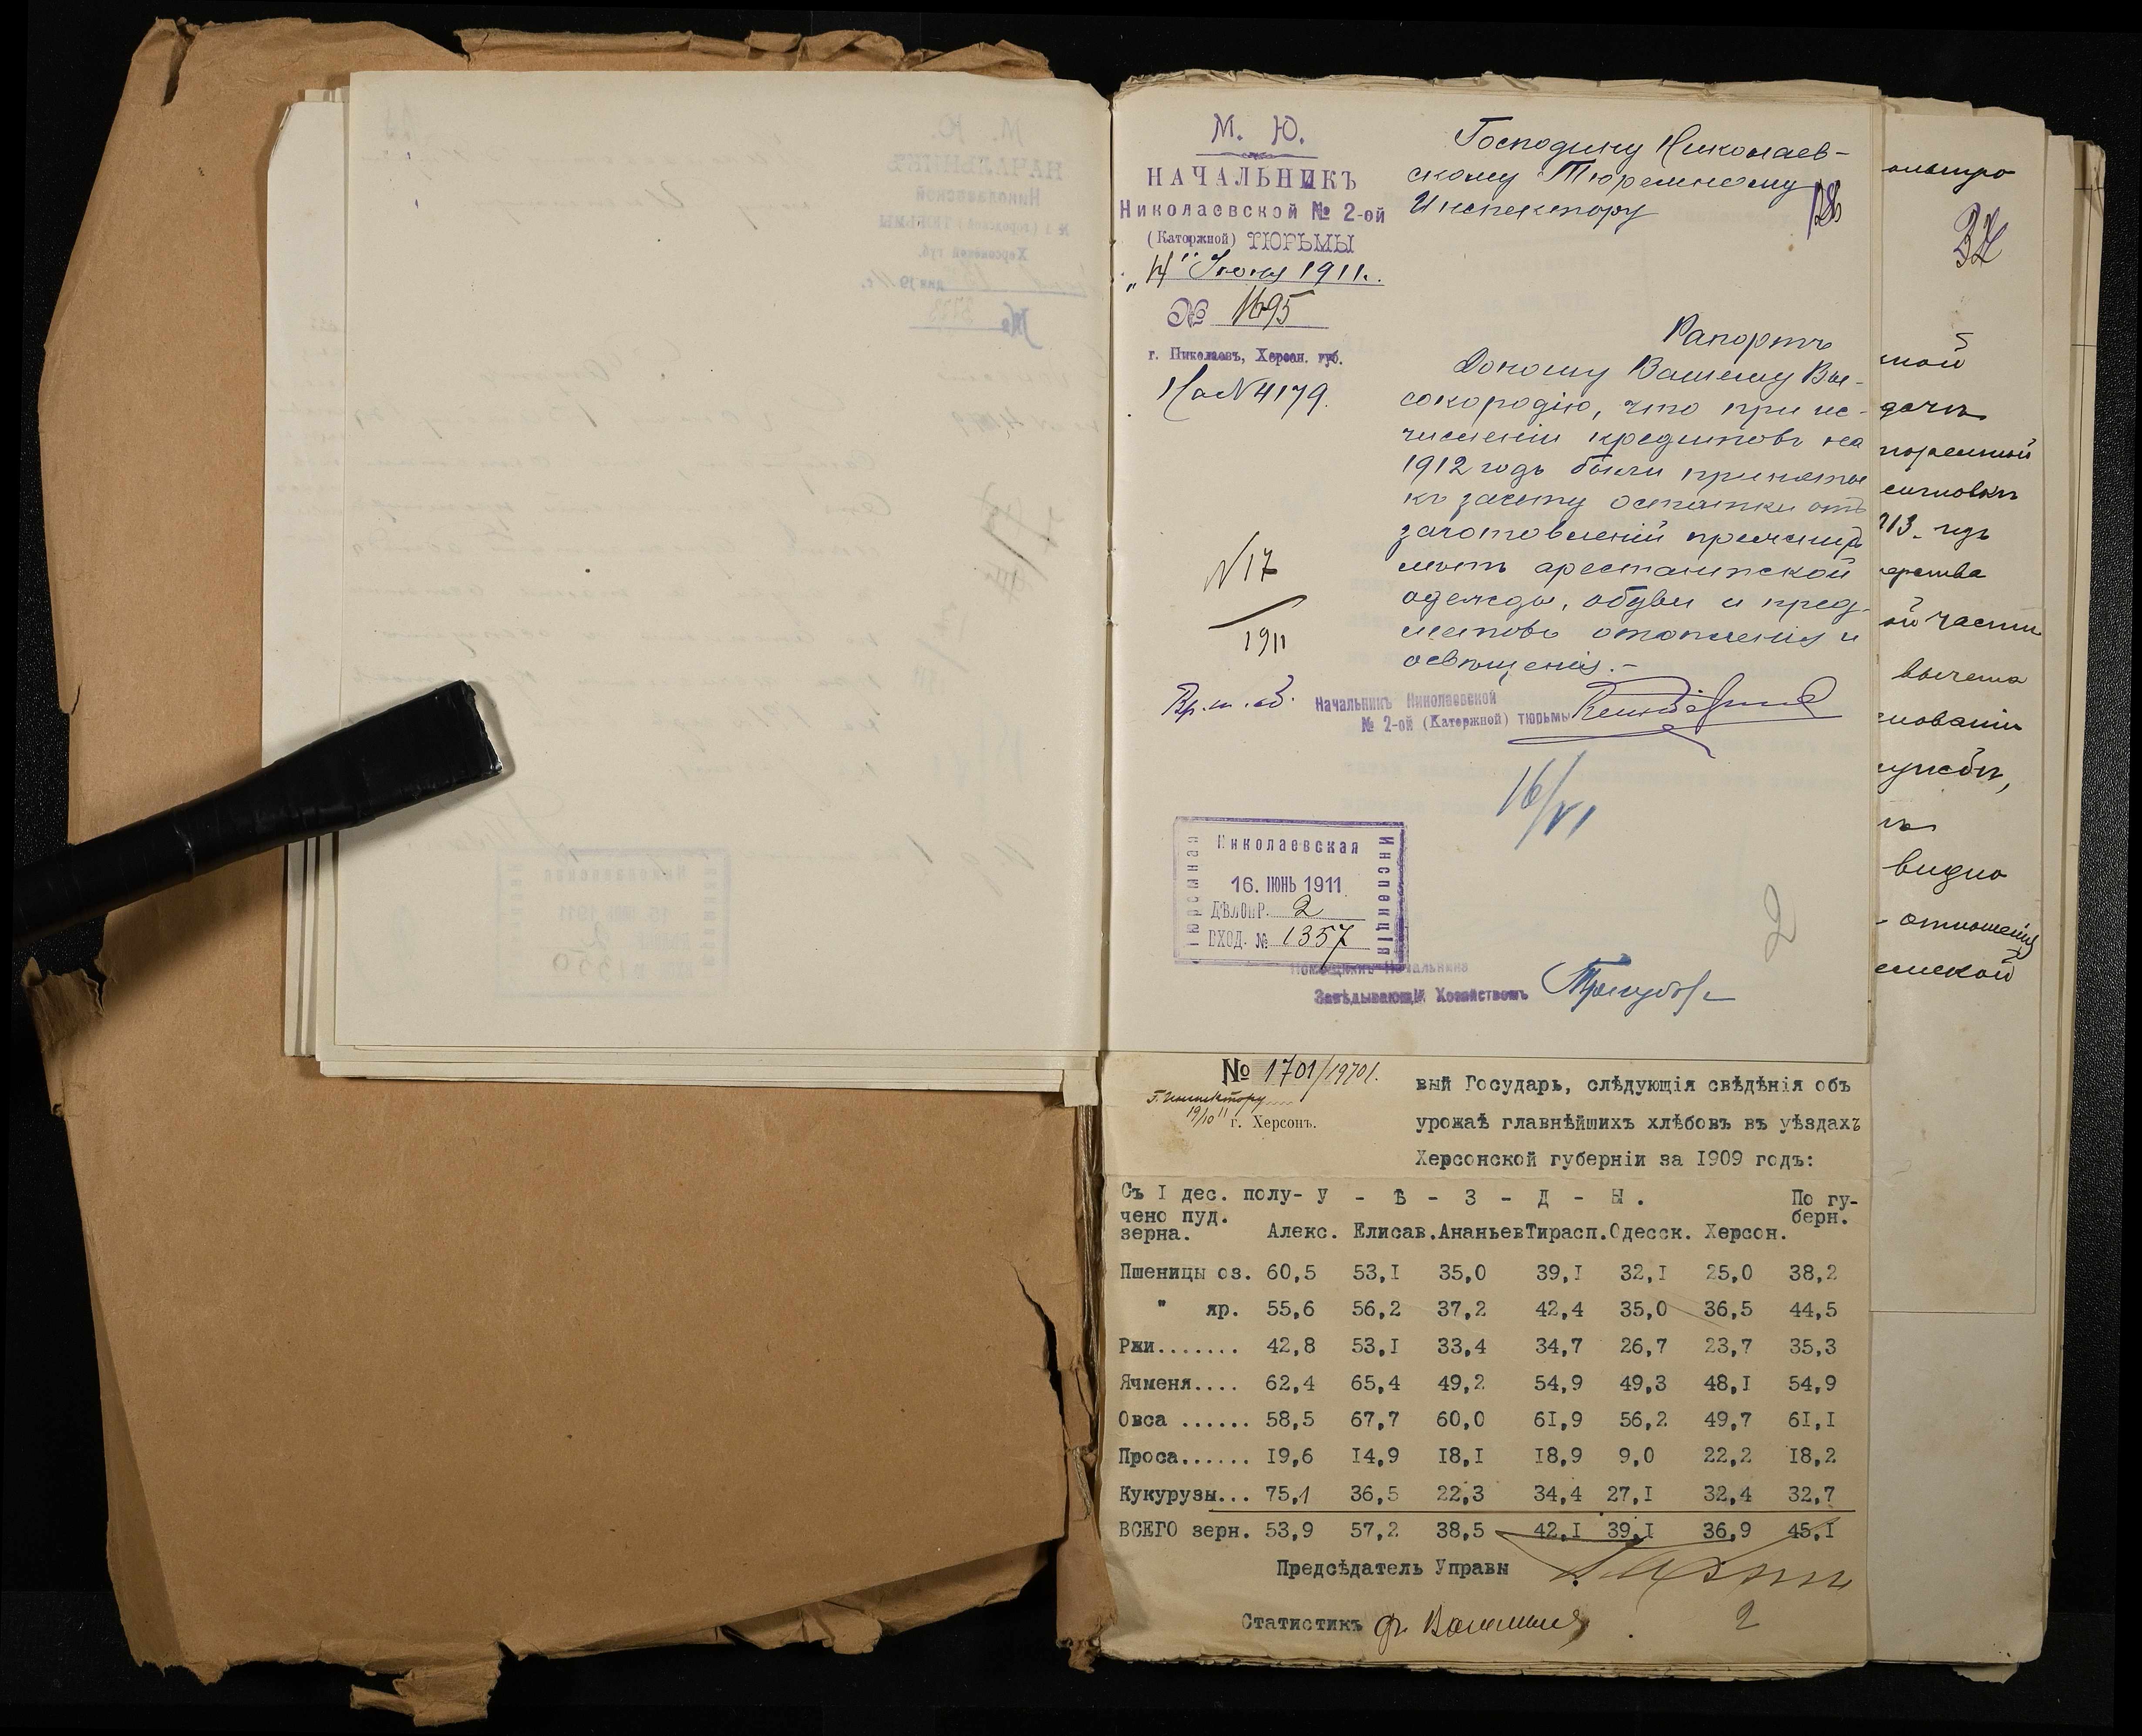 М. Ю.
НАЧАЛЬНИКЪ
Николаевской № 2-ой
(Каторжной) ТЮРЬМЫ
Іюня 1911 г.
№ 1695
г. Николаевъ, Херсон. губ.
На № 4179.
Господину Николаев-
скому Тюремному
Инспектору
Рапортъ
Доношу Вашему Вы-
сокородію, что при ис-
численіи кредитовъ на
1912 годъ были приняты
къ зачету остатки отъ
заготовленій
арестантской
одежды, обуви и пред-
метовъ отопленія и
освѣщенія.-
N 17
1911
Вр. и. об. Начальникъ Николаевской
№ 2-ой (Каторжной) тюрьмы
16/VI
Николаевская
Тюремная
Инспекція
16. ІЮНЬ 1911
ДѢЛОПР. 2
ВХОД. № 1357
Помощникъ Начальника
Завѣдывающій Хозяйствомъ
2
№ 1701/19701.
Г. Инспектору
19/10 11
г. Херсонъ.
вый Государь, слѣдующія свѣдѣнія объ
урожаѣ главнѣйшихъ хлѣбовъ въ уѣздахъ
Херсонской губерніи за I909 годъ:
Съ I дес. полу- У - Ѣ - З - Д - Ы . По гу-
чено пуд. берн.
зерна. Алекс. Елисав. Ананьев Тирасп. Одесск. Херсон.
Пшеницы оз. 60,5 53,I 35,0 39,I 32,I 25,0 38,2
" яр. 55,6 56,2 37,2 42,4 35,0 36,5 44,5
Ржи....... 42,8 53,I 33,4 34,7 26,7 23,7 35,3
Ячменя.... 62,4 65,4 49,2 54,9 49,3 48,I 54,9
Овса ...... 58,5 67,7 60,0 6I,9 56,2 49,7 6I,I
Проса...... I9,6 I4,9 I8,I I8,9 9,0 22,2 I8,2
Кукурузы... 75,1 36,5 22,3 34,4 27,I 32,4 32,7
ВСЕГО зерн. 53,9 57,2 38,5 42,I 39,I 36,9 45,I
Предсѣдатель Управы
Статистикъ
2
32
ной
дачѣ
тюремной
913 годъ
ой части
вычета
нованіи
ужбы,
видно
- отношенія